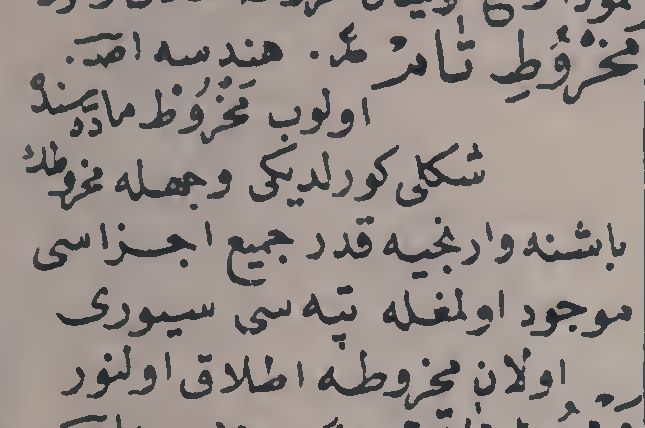 مخْرُوُطِ تَامْ عَر. هندسه اصـ.
اولوب مَخْرُوُطْ ماده سنده
شكلى كورلديكى وجهله مخروطك
باشنه وارنجيه قدر جميع اجزاسى
موجود اولمغله تپه سى سيورى
اولان مخروطه اطلاق اولنور